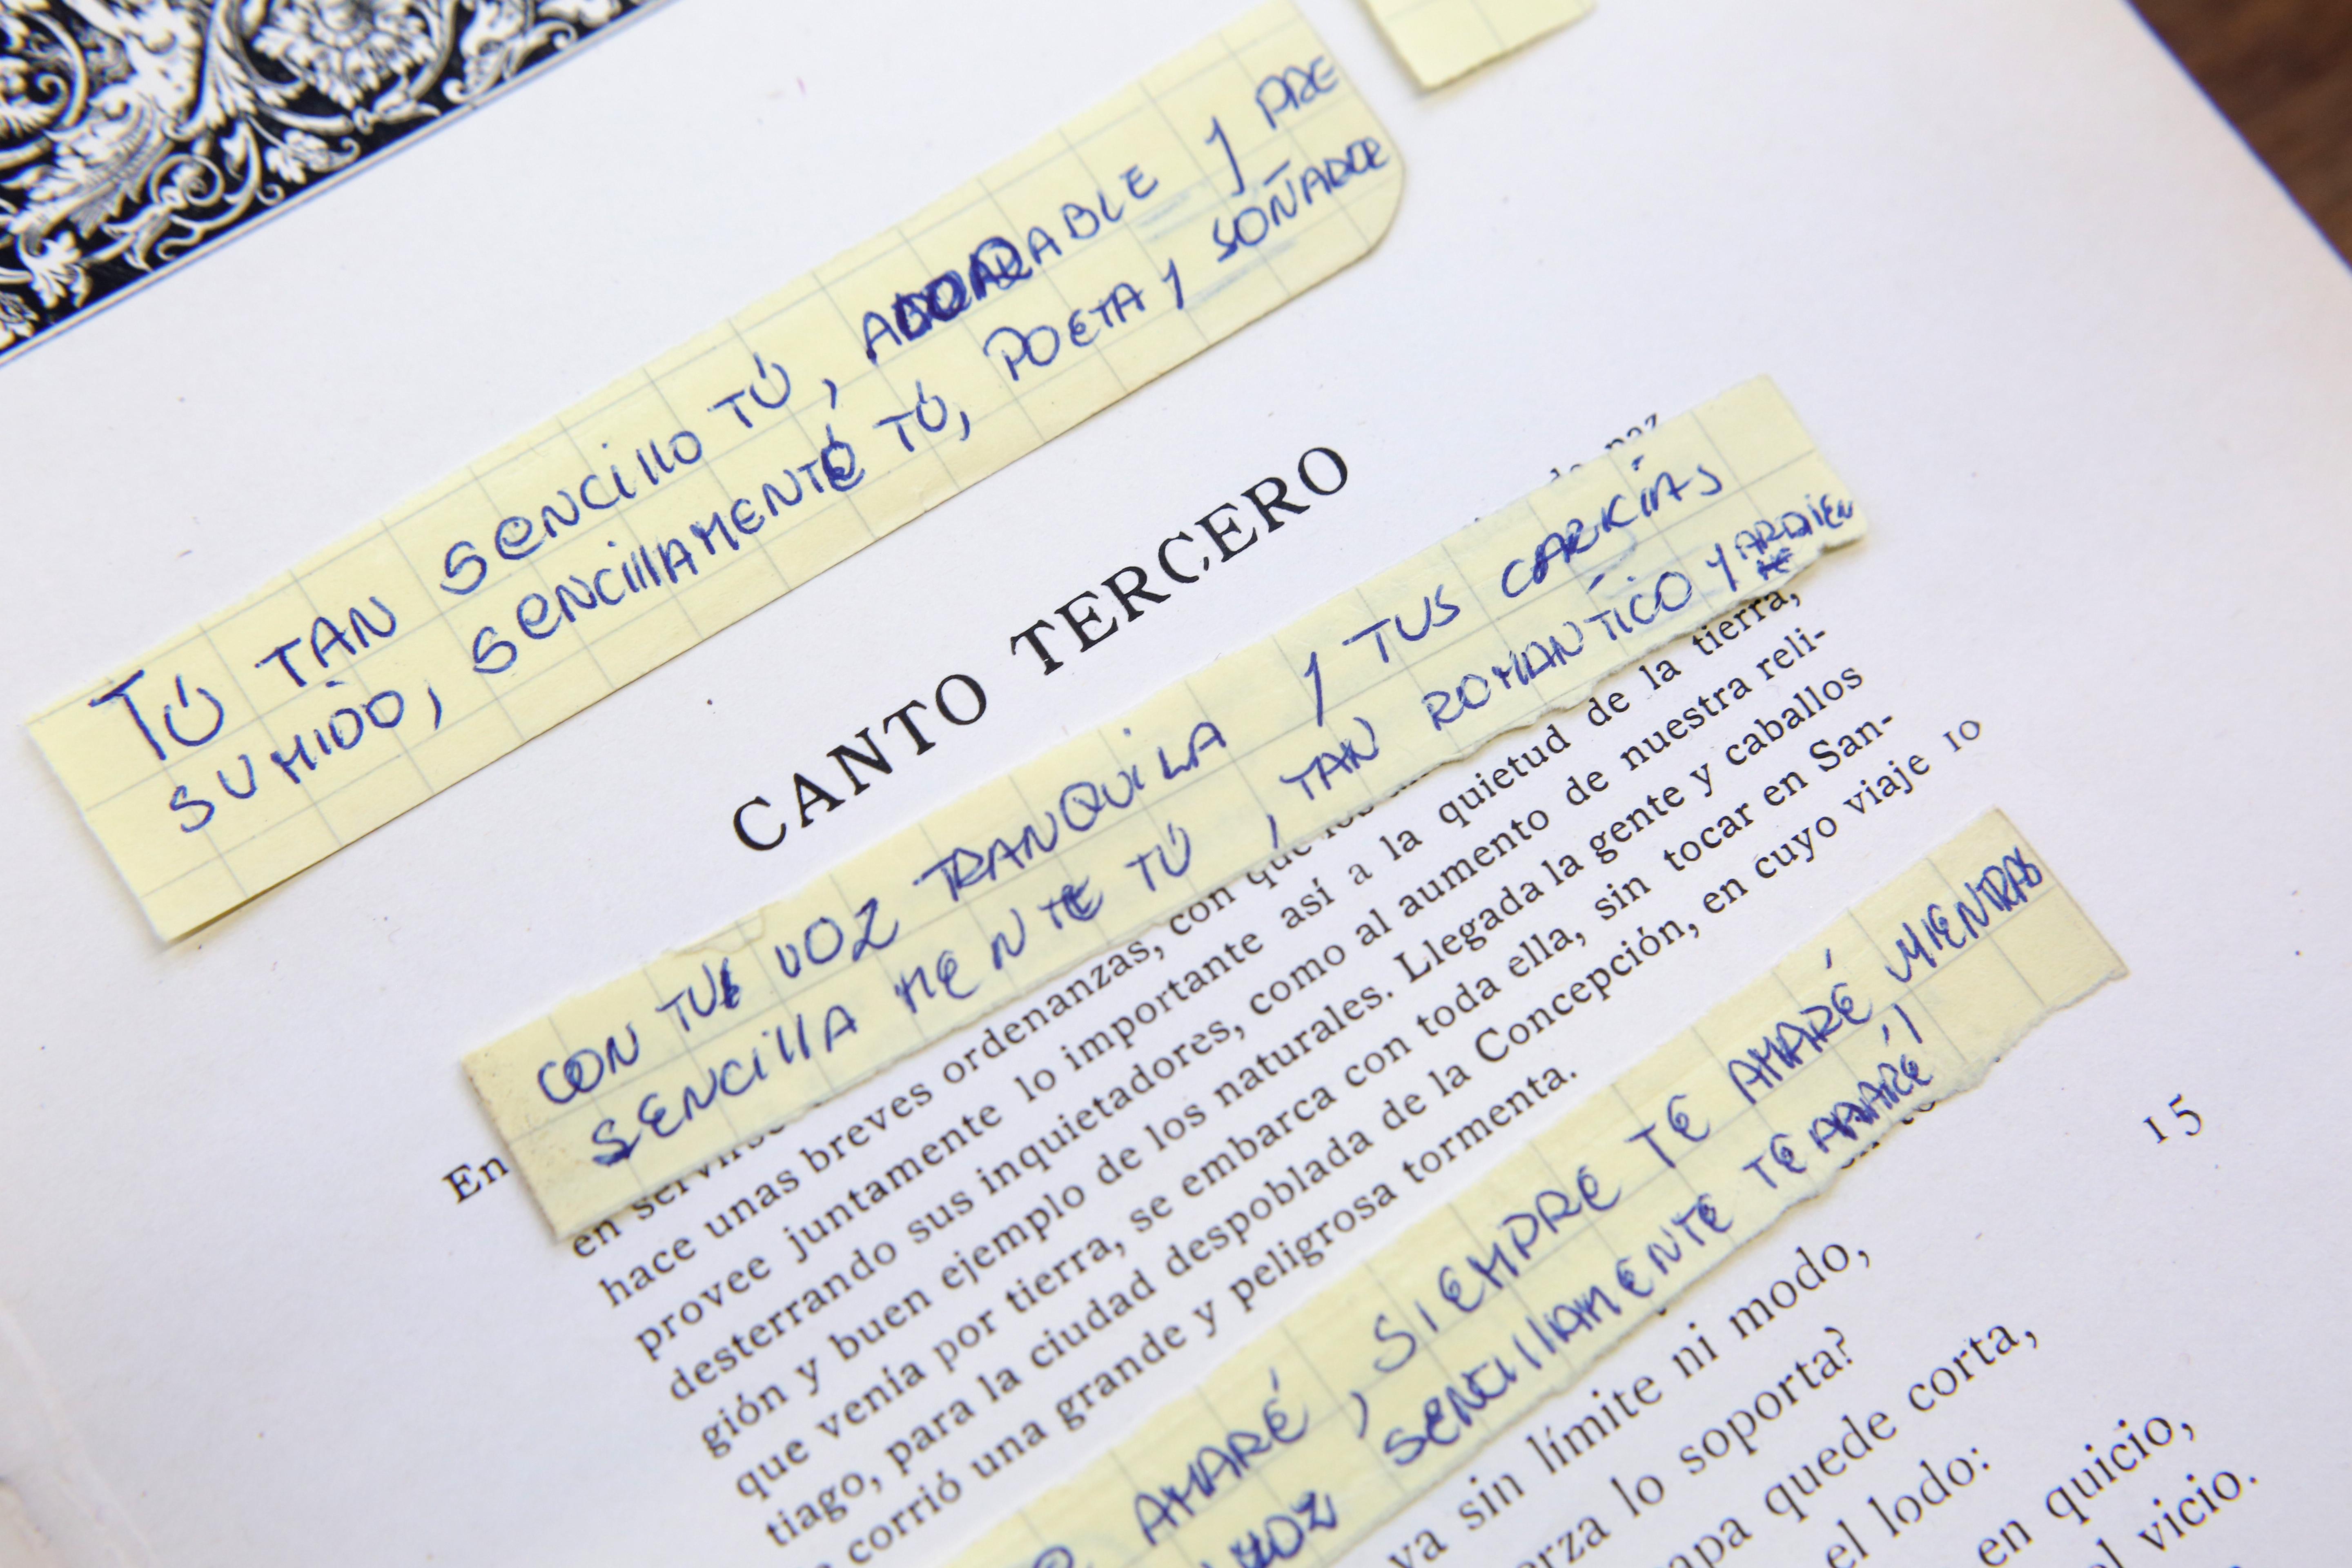 TÚ TAN SENCILLO TÚ, ADORABLE Y PRE
SUMIDO, SENCILLAMENTE TÚ, POETA Y SOÑADOR
CANTO TERCERO
de paz
CON TUS VOZ TRANQUILA Y TUS CARICIAS
SENCILLAMENTE TÚ, TAN ROMANTICO Y ARDIEN
TE
En
en
hace unas breves ordenanzas, con que los
provee juntamente lo importante así a la quietud de la tierra,
desterrando sus inquietadores, como al aumento de nuestra reli-
gión y buen ejemplo de los naturales. Llegada la gente y caballos
que venía por tierra, se embarca con toda ella, sin tocar en San-
tiago, para la ciudad despoblada de la Concepción, en cuyo viaje 10
corrió una grande y peligrosa tormenta.
AMARÉ, SIEMPRE TE AMARÉ MIENTRAS
VOZ SENCILLAMENTE TE AMARÉ!
15
va sin límite ni modo,
lo soporta?
quede corta,
el lodo:
en quicio,
vicio.